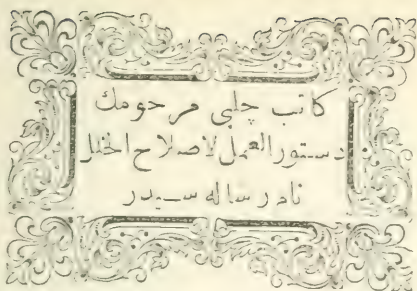 كاتب چلبی مرحومك
دستورالعمل لاصلاح الخلل
نام رساله سیدر